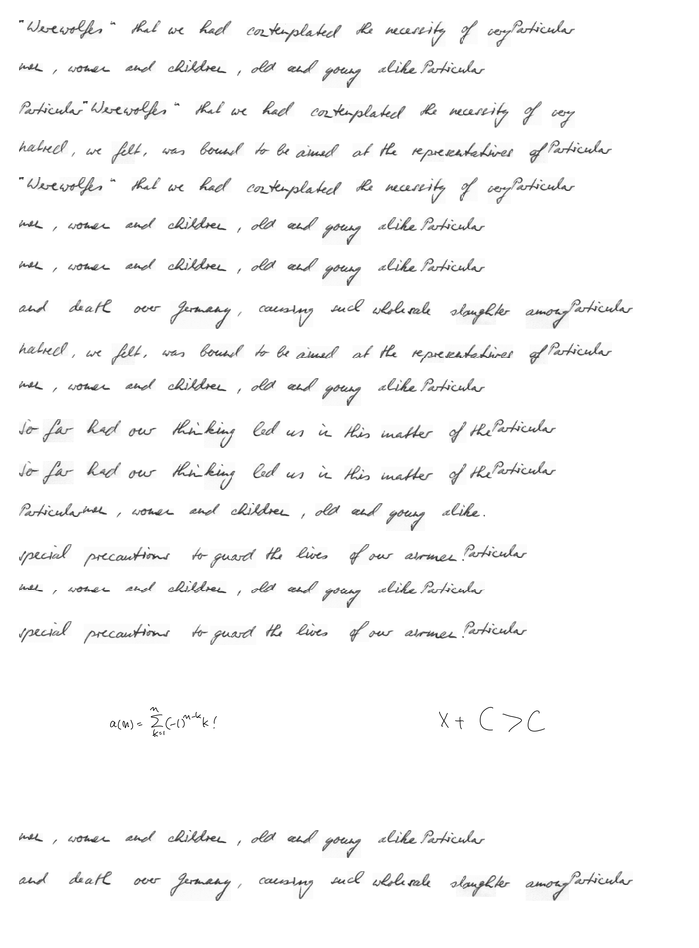 "Werewolfes" that we had contemplated the necessity of veryParticular
men, women and children, old and young alikeParticular
Particular"Werewolfes" that we had contemplated the necessity of very
hatred, we felt, was bound to be aimed at the representatives ofParticular
"Werewolfes" that we had contemplated the necessity of veryParticular
men, women and children, old and young alikeParticular
men, women and children, old and young alikeParticular
and death over Germany, causing such wholesale slaughter amongParticular
hatred, we felt, was bound to be aimed at the representatives ofParticular
men, women and children, old and young alikeParticular
So far had our thinking led us in this matter of theParticular
So far had our thinking led us in this matter of theParticular
Particularmen, women and children, old and young alike.
special precautions to guard the lives of our airmen.Particular
men, women and children, old and young alikeParticular
special precautions to guard the lives of our airmen.Particular
a(n) = \sum_{k=1}^{n} (-1)^{n-k} k! X + C > C
men, women and children, old and young alikeParticular
and death over Germany, causing such wholesale slaughter amongParticular